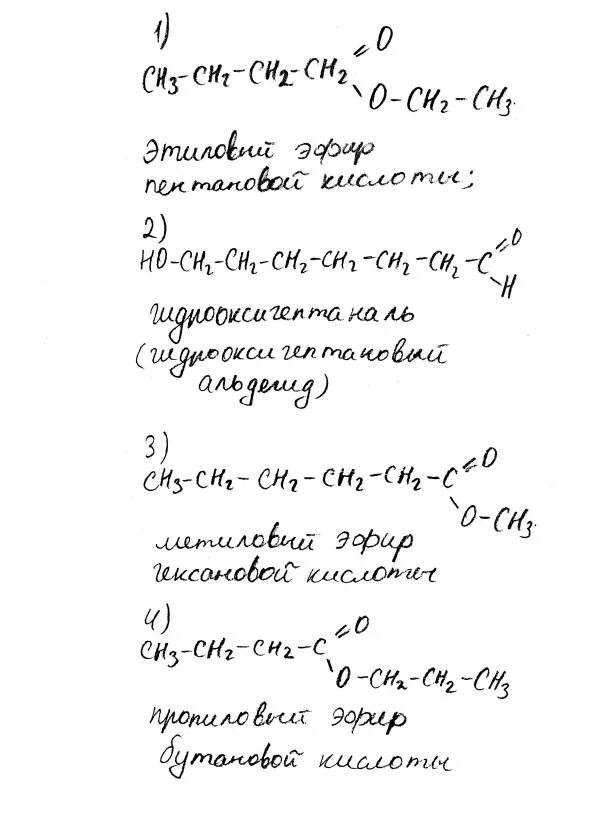 1)
O
CH3-CH2-CH2-CH2
O-CH2-CH3
этиловый эфир
пентановой кислоты;
2)
HO-CH2-CH2-CH2-CH2-CH2-CH2-C=O
H
гидрооксигептаналь
(гидрооксигептановый
альдегид)
3)
CH3-CH2-CH2-CH2-CH2-C=O
O-CH3
метиловый эфир
гексановой кислоты
4)
CH3-CH2-CH2-C=O
O-CH2-CH2-CH3
пропиловый эфир
бутановой кислоты